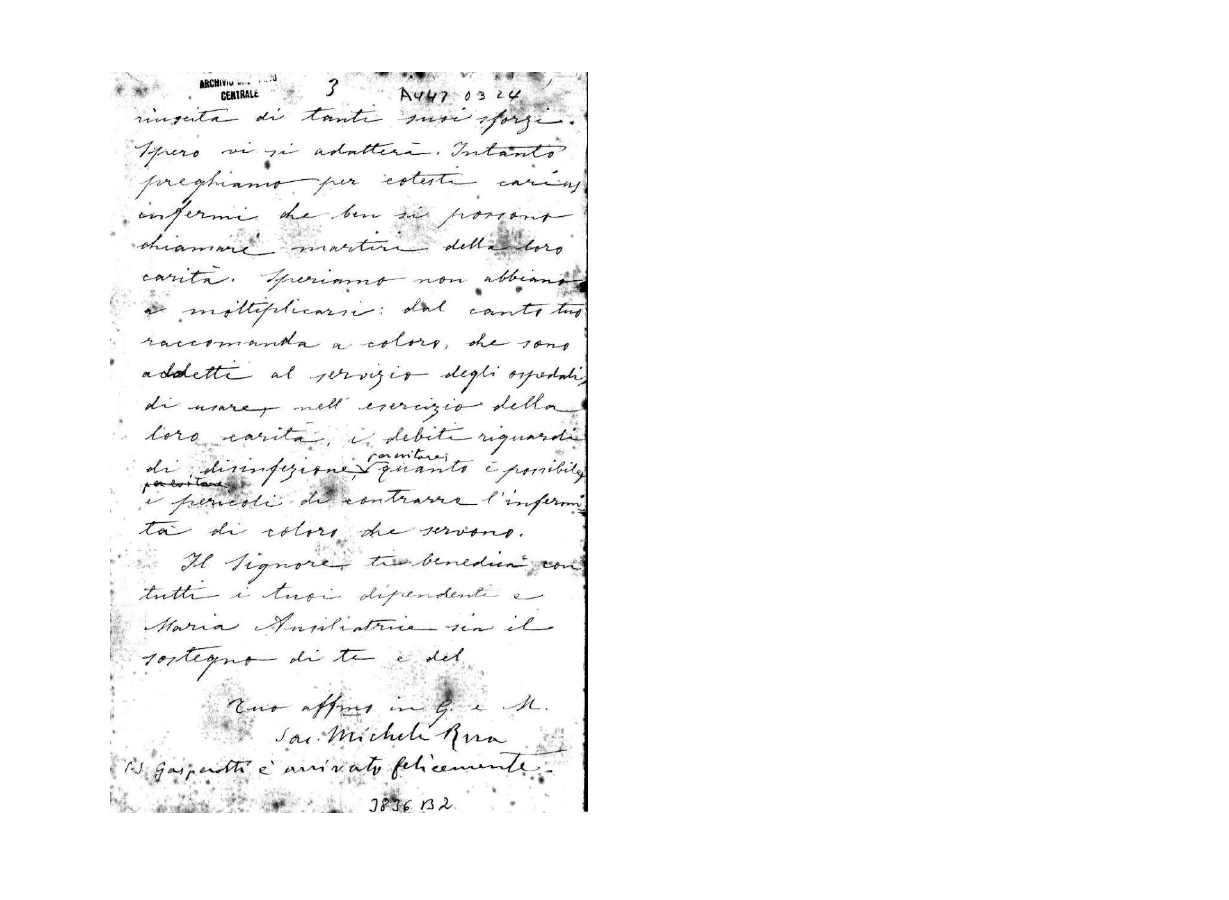 ARCHIVIO
CENTRALE
3
A447 03 24
riuscita di tanti suoi sforzi.
Spero vi si adatterà. Intanto
preghiamo per cotesti cariss
infermi che ben si possono
chiamare martiri della loro
carità. Speriamo non abbiano
a moltiplicarsi: dal canto tuo
raccomanda a coloro, che sono
addetti al servizio degli ospedali,
di usare, nell' esercizio della
loro carità, i debiti riguardi
per evitare,
di disinfezione, quanto è possibile,
per evitare
i pericoli di contrarre l'infermi=
tà di coloro che servono.
Il Signore ti benedica con
tutti i tuoi dipendenti e
Maria Ausiliatrice sia il
sostegno di te e del
Tuo affmo in G. e M.
Sac. Michele Rua
P.S Gasparotti è arrivato felicemente.
3836 B2